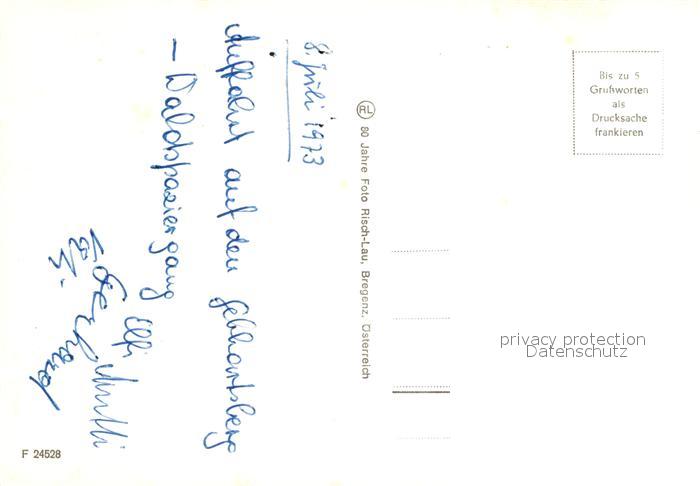 8. Juli 1973
Auffahrt auf den Gebhardsberg
– Waldspaziergang
Elfi
Mutti
RL 80 Jahre Foto Risch-Lau, Bregenz, Österreich
Bis zu 5
Grußworten
als
Drucksache
frankieren
privacy protection
Datenschutz
F 24528